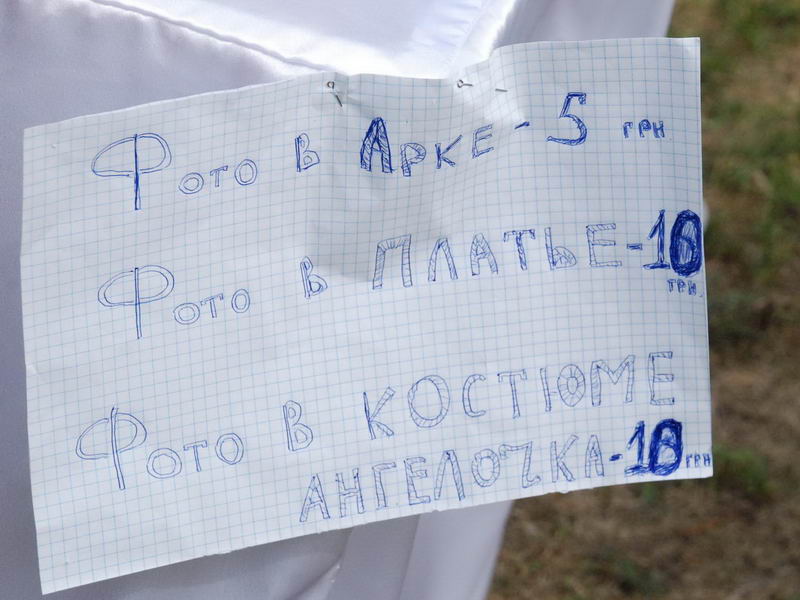 Фото в Арке - 5 грн
Фото в ПЛАТЬЕ - 10
грн.
Фото в КОСТЮМЕ
АНГЕЛОЧКА - 10 грн